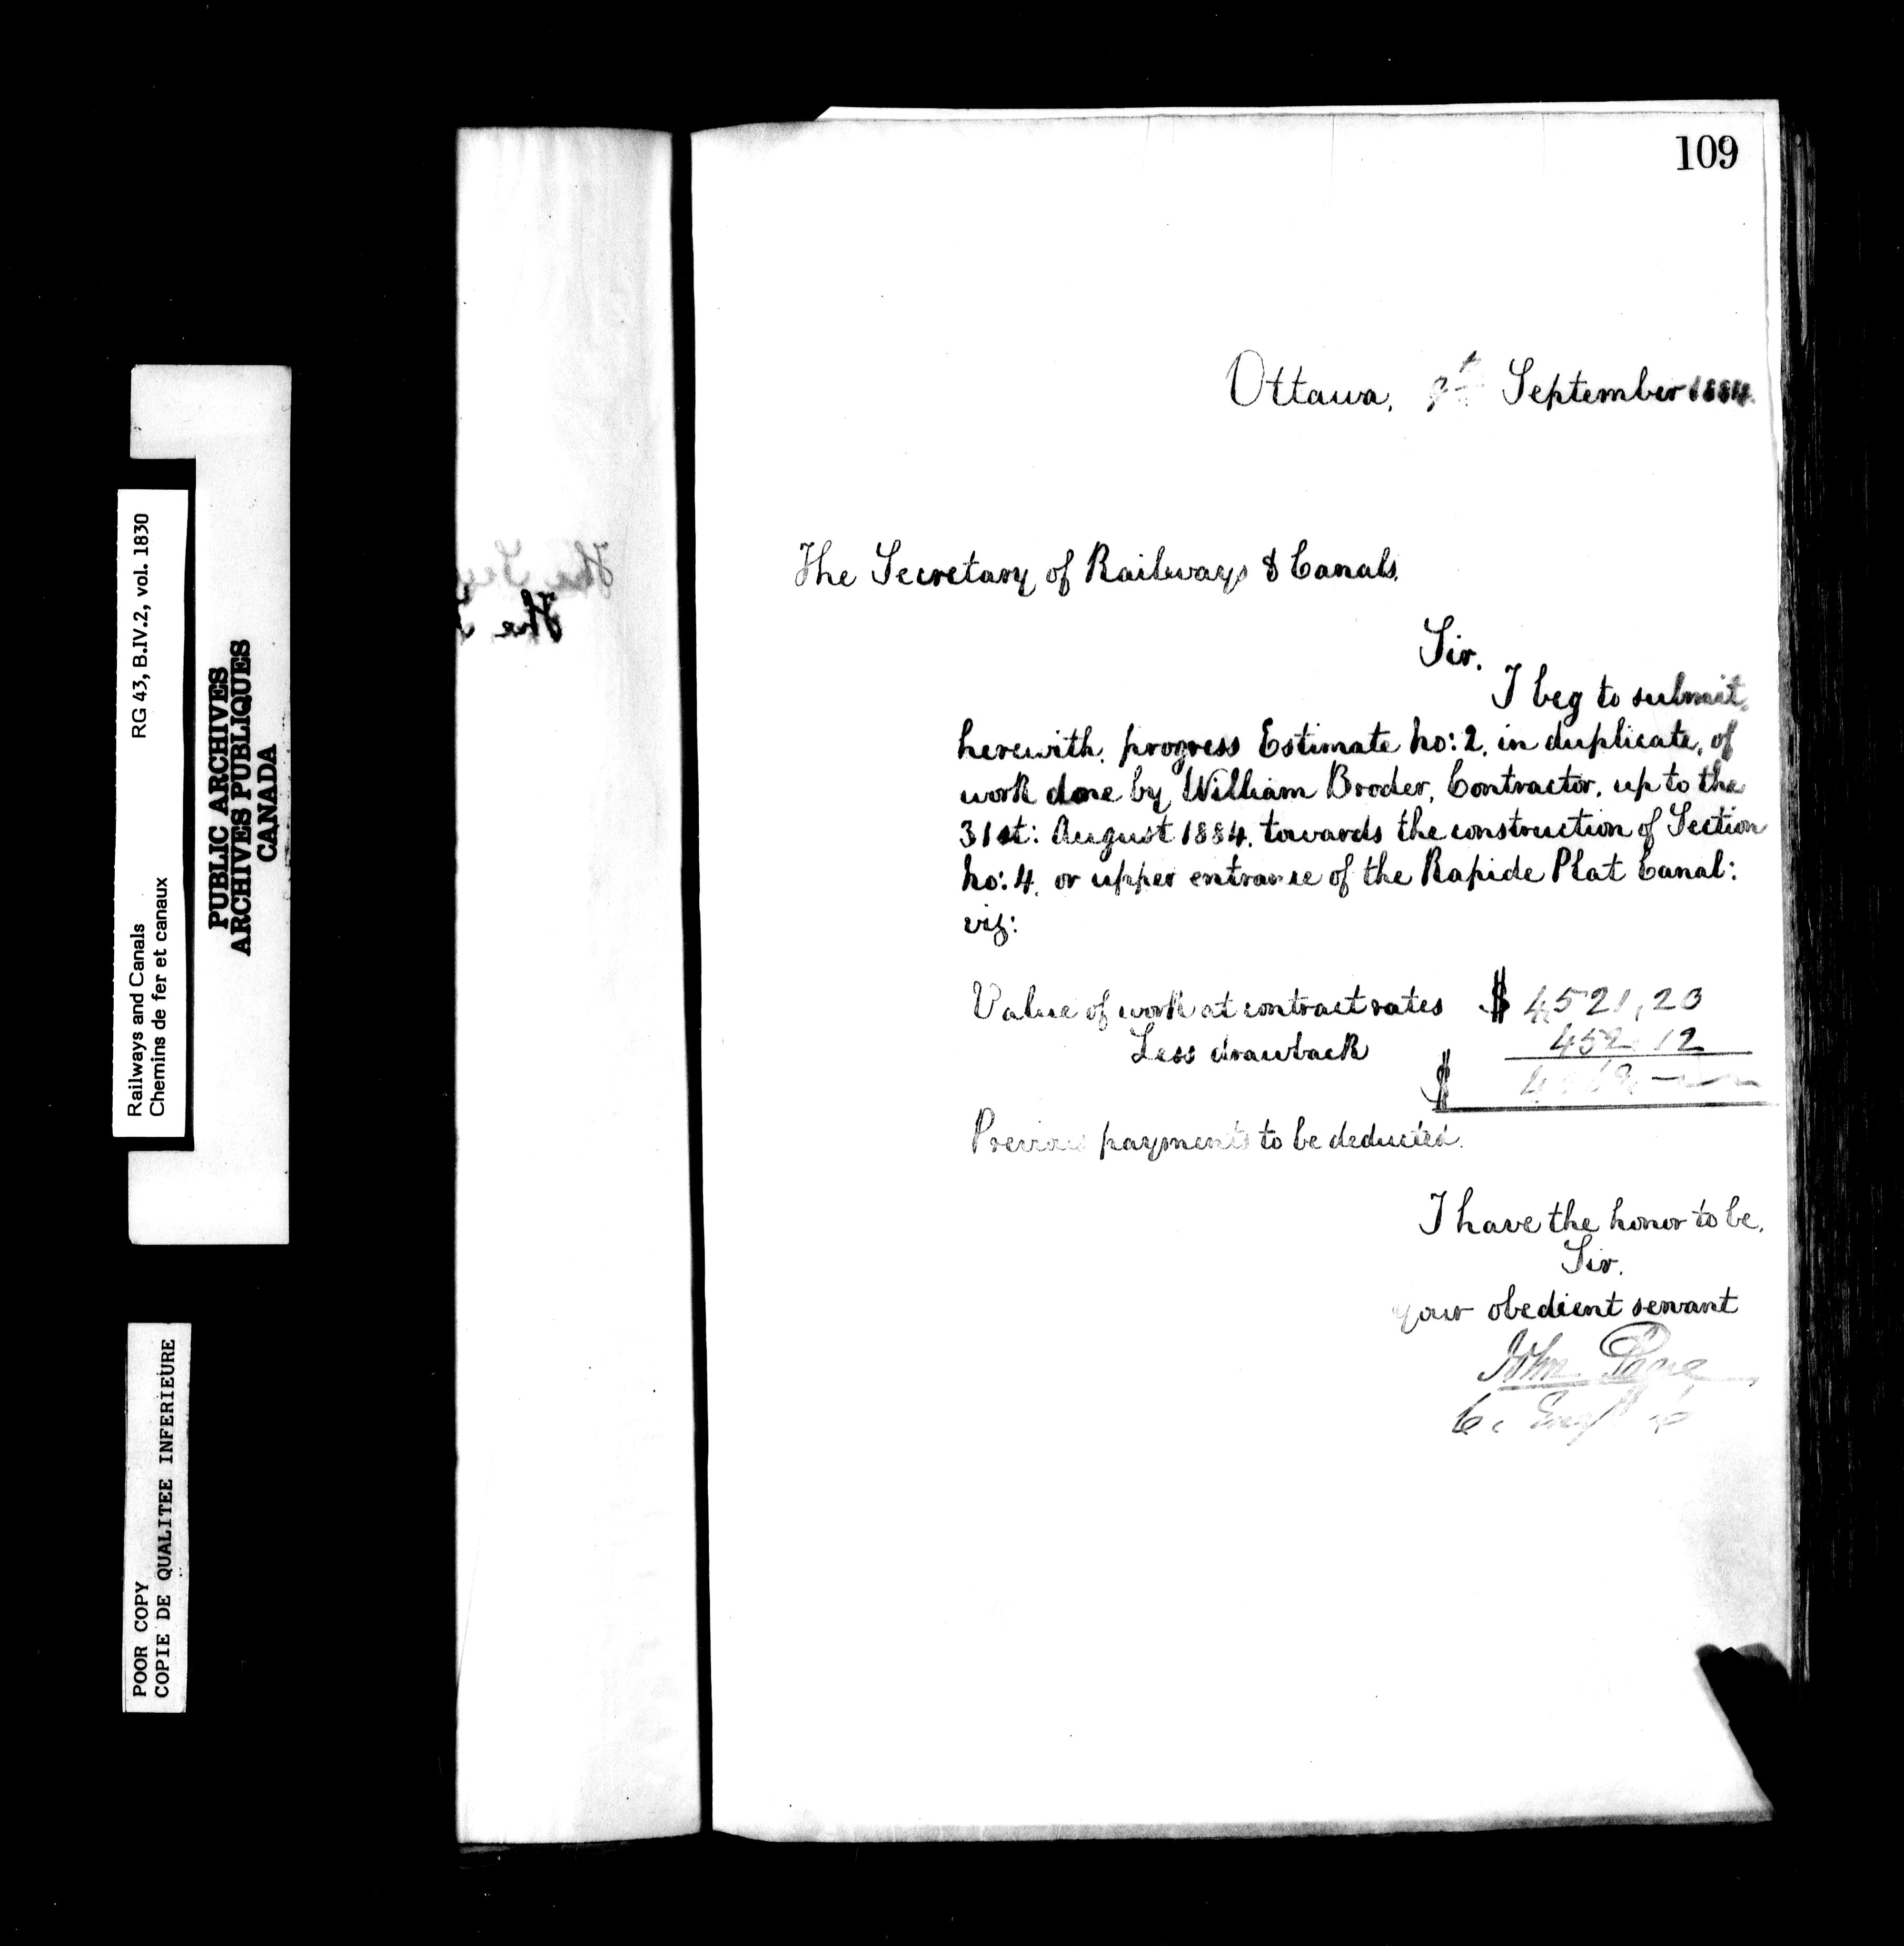 109
Ottawa, 9th September 1884.
The Secretary of Railways & Canals.
Sir.
I beg to submit,
herewith, progress Estimate No: 2, in duplicate, of
work done by William Broder, Contractor, up to the
31st: August 1884, towards the construction of Section
No: 4, or upper entrance of the Rapide Plat Canal:
viz:
Value of work at contract rates $ 4,521,20
Less drawback 452 12
$
Previous payments to be deducted.
I have the honor to be,
Sir.
your obedient servant
John Page
C. Eng
The
The
Railways and Canals RG 43, B.IV.2, vol. 1830
Chemins de fer et canaux
PUBLIC ARCHIVES
ARCHIVES PUBLIQUES
CANADA
POOR COPY
COPIE DE QUALITEE INFERIEURE